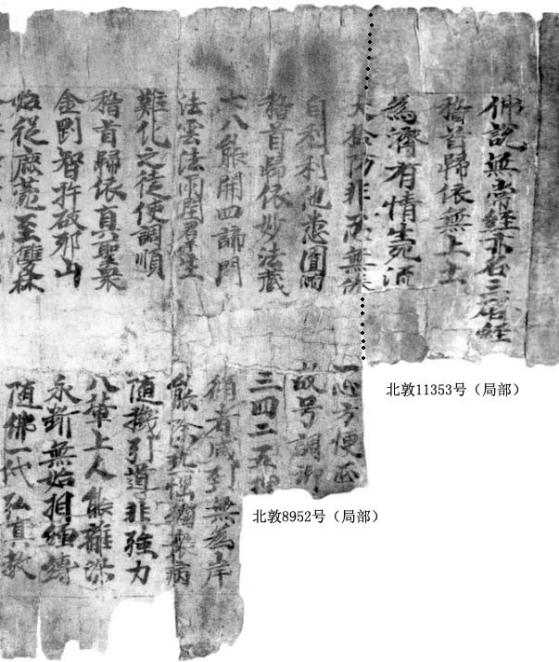 佛說無常經亦名三啓經
稽首歸依無上士
為濟有情生死流
大捨防非忍無倦 一心方便正
自利利他悉圓滿 故号調御
稽首歸依妙法藏 三四二五理
七八能開四諦門 脩者咸到無為岸
法雲法雨潤羣生 能除熱惱蠲衆病
難化之徒使調順 随機引導非強力
稽首歸依真聖衆 八輩上人能離染
金剛智杵破邪山 永斷無始相纏縛
始從鹿菀至雙林 随佛一代弘真教
北敦11353号（局部）
北敦8952号（局部）